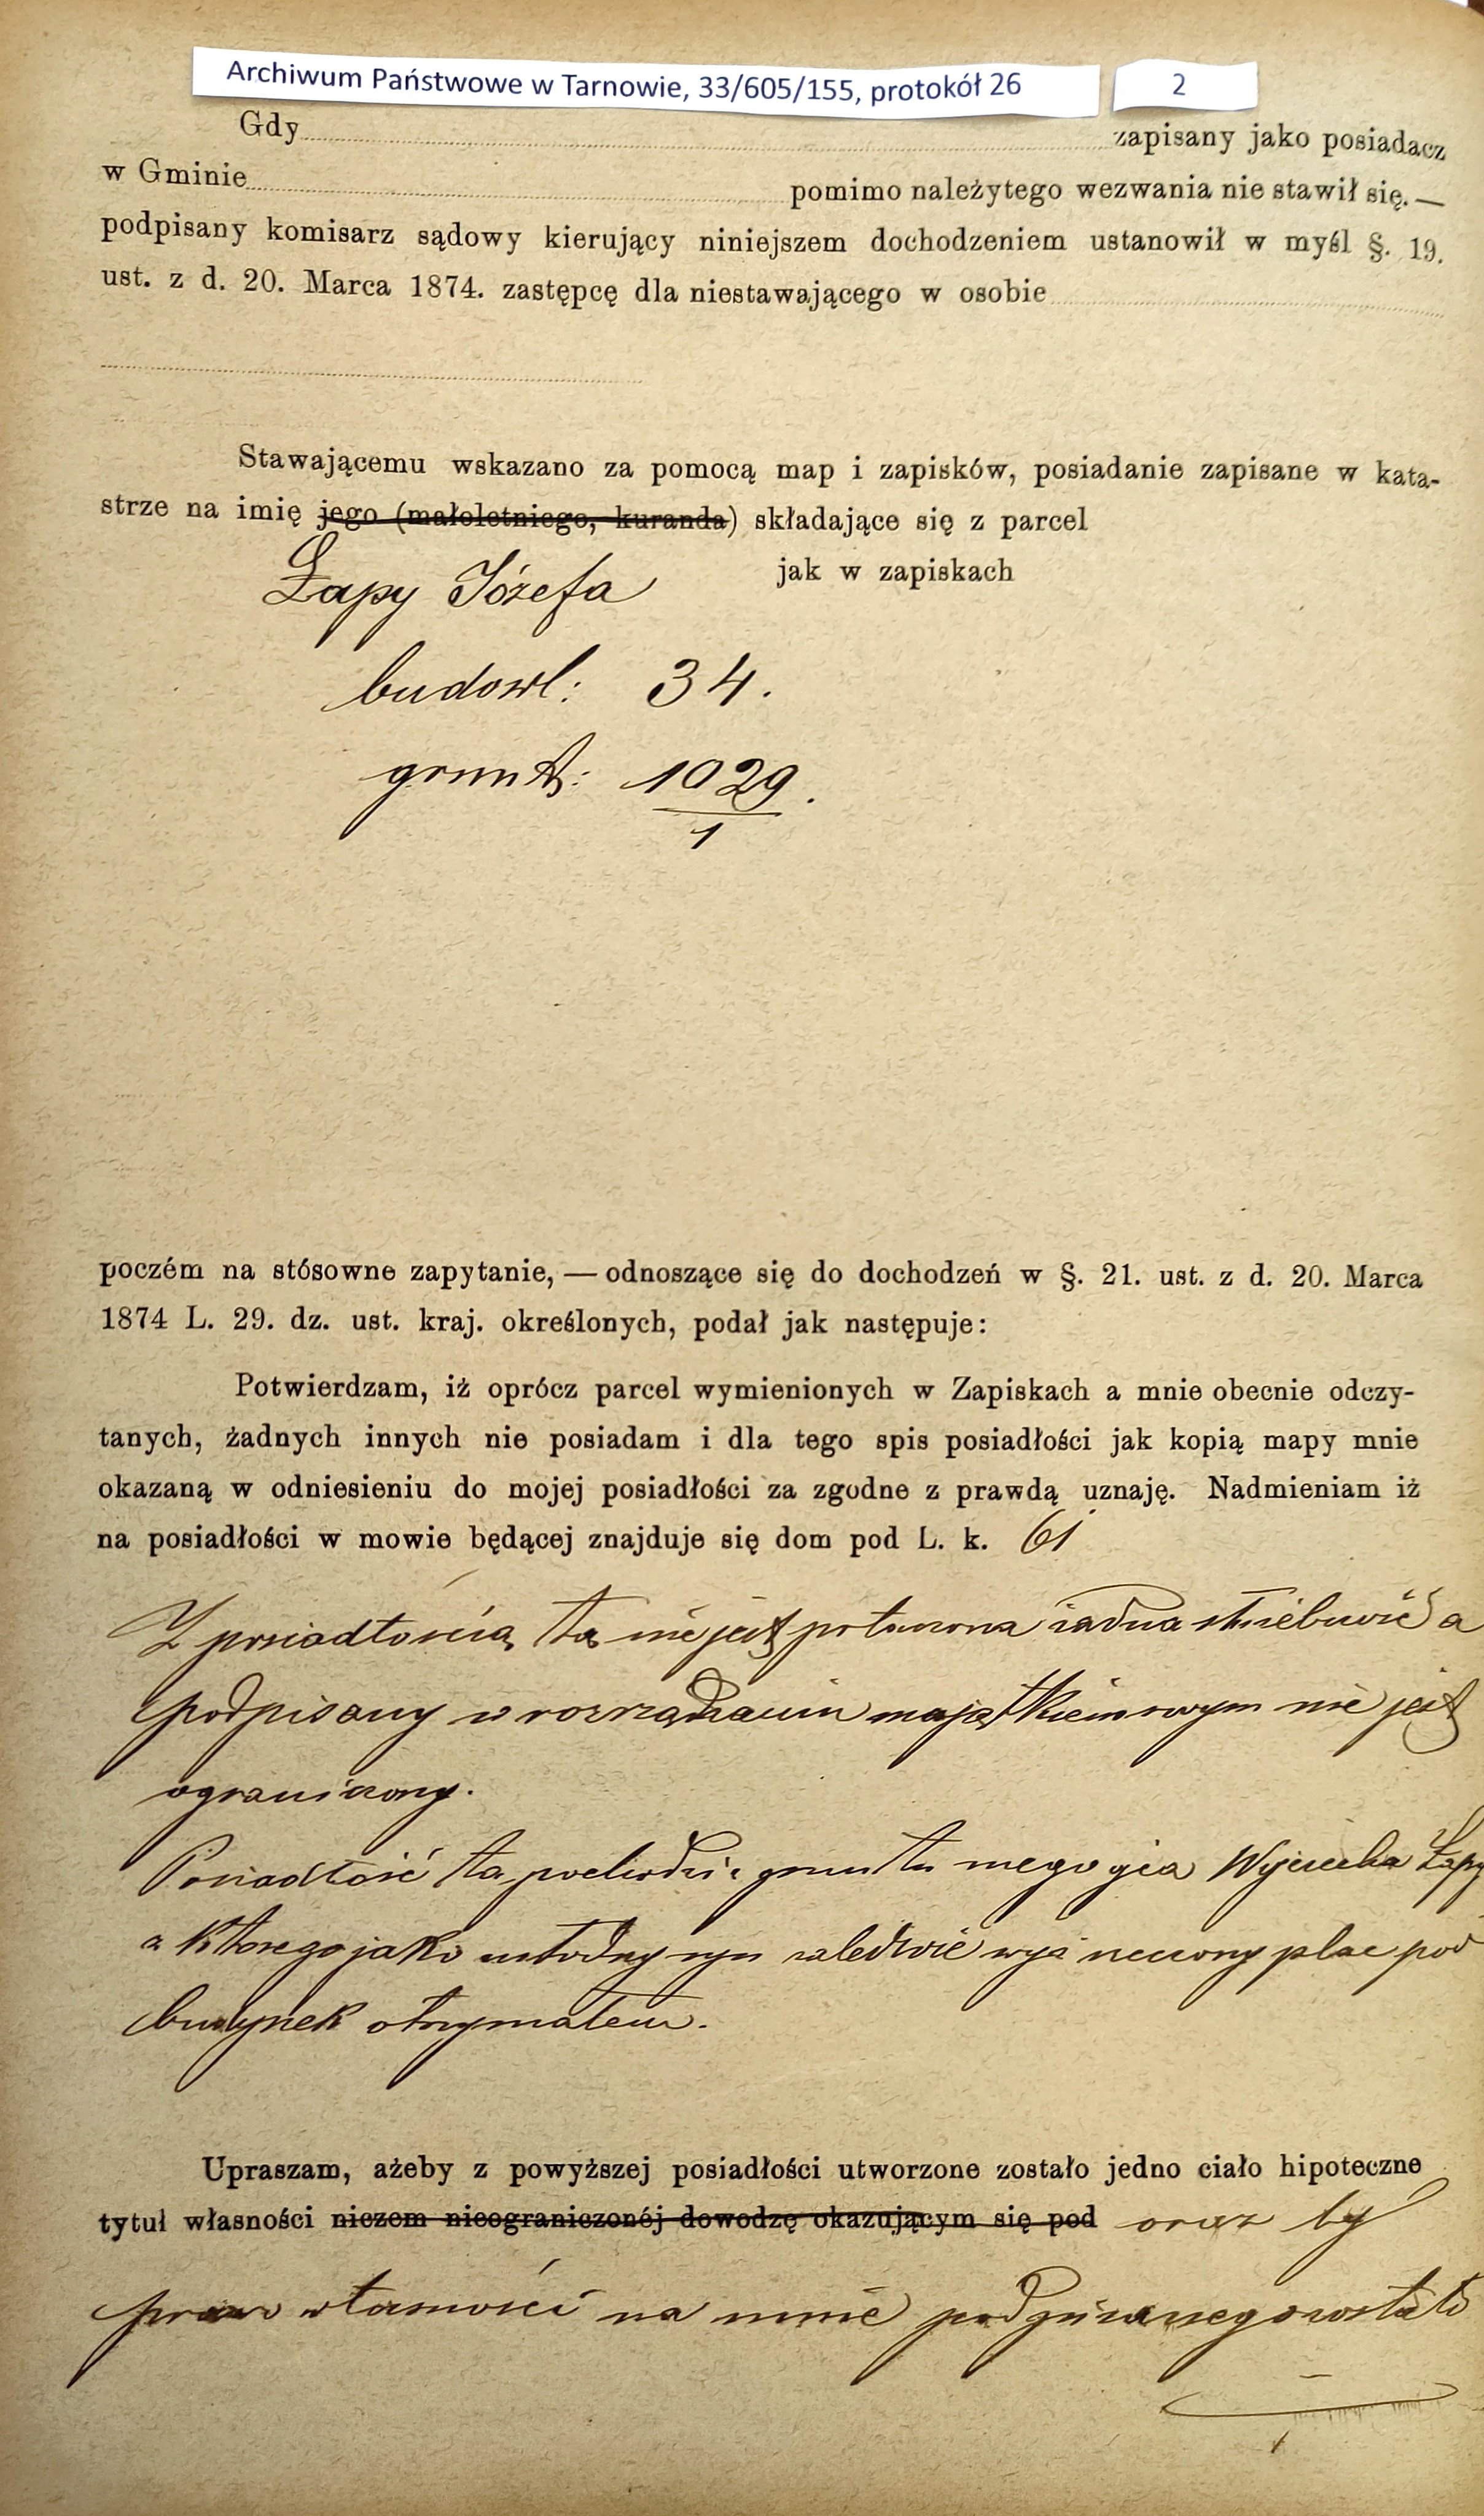 Archiwum Państwowe w Tarnowie, 33/605/155, protokół 26
2
Gdy zapisany jako posiadacz
w Gminie pomimo należytego wezwania nie stawił się.—
podpisany komisarz sądowy kierujący niniejszem dochodzeniem ustanowił w myśl §. 19.
ust. z d. 20. Marca 1874. zastępcę dla niestawającego w osobie
Stawającemu wskazano za pomocą map i zapisków, posiadanie zapisane w kata-
strze na imię jego (małoletniego, kuranda) składające się z parcel
Łapy Józefa jak w zapiskach
budowl: 34.
grunt: 1029.
1
poczém na stósowne zapytanie, — odnoszące się do dochodzeń w §. 21. ust. z d. 20. Marca
1874 L. 29. dz. ust. kraj. określonych, podał jak następuje:
Potwierdzam, iż oprócz parcel wymienionych w Zapiskach a mnie obecnie odczy-
tanych, żadnych innych nie posiadam i dla tego spis posiadłości jak kopią mapy mnie
okazaną w odniesieniu do mojej posiadłości za zgodne z prawdą uznaję. Nadmieniam iż
na posiadłości w mowie będącej znajduje się dom pod L. k. 61
Z posiadłością tą nie jest połączona żadna służebność a
podpisany w rozrządzaniu majątkiem swym nie jest
ograniczony.
Posiadłość ta pochodzi z gruntu mego ojca Wojciecha Łapy
z którego jako młodszy syn zaledwie wyznaczony plac pod
budynek otrzymałem.
Upraszam, ażeby z powyższej posiadłości utworzone zostało jedno ciało hipoteczne
tytuł własności niczem nieograniczonéj dowodzę okazującym się pod oraz by
prawo własności na mnie podpisanego zostało